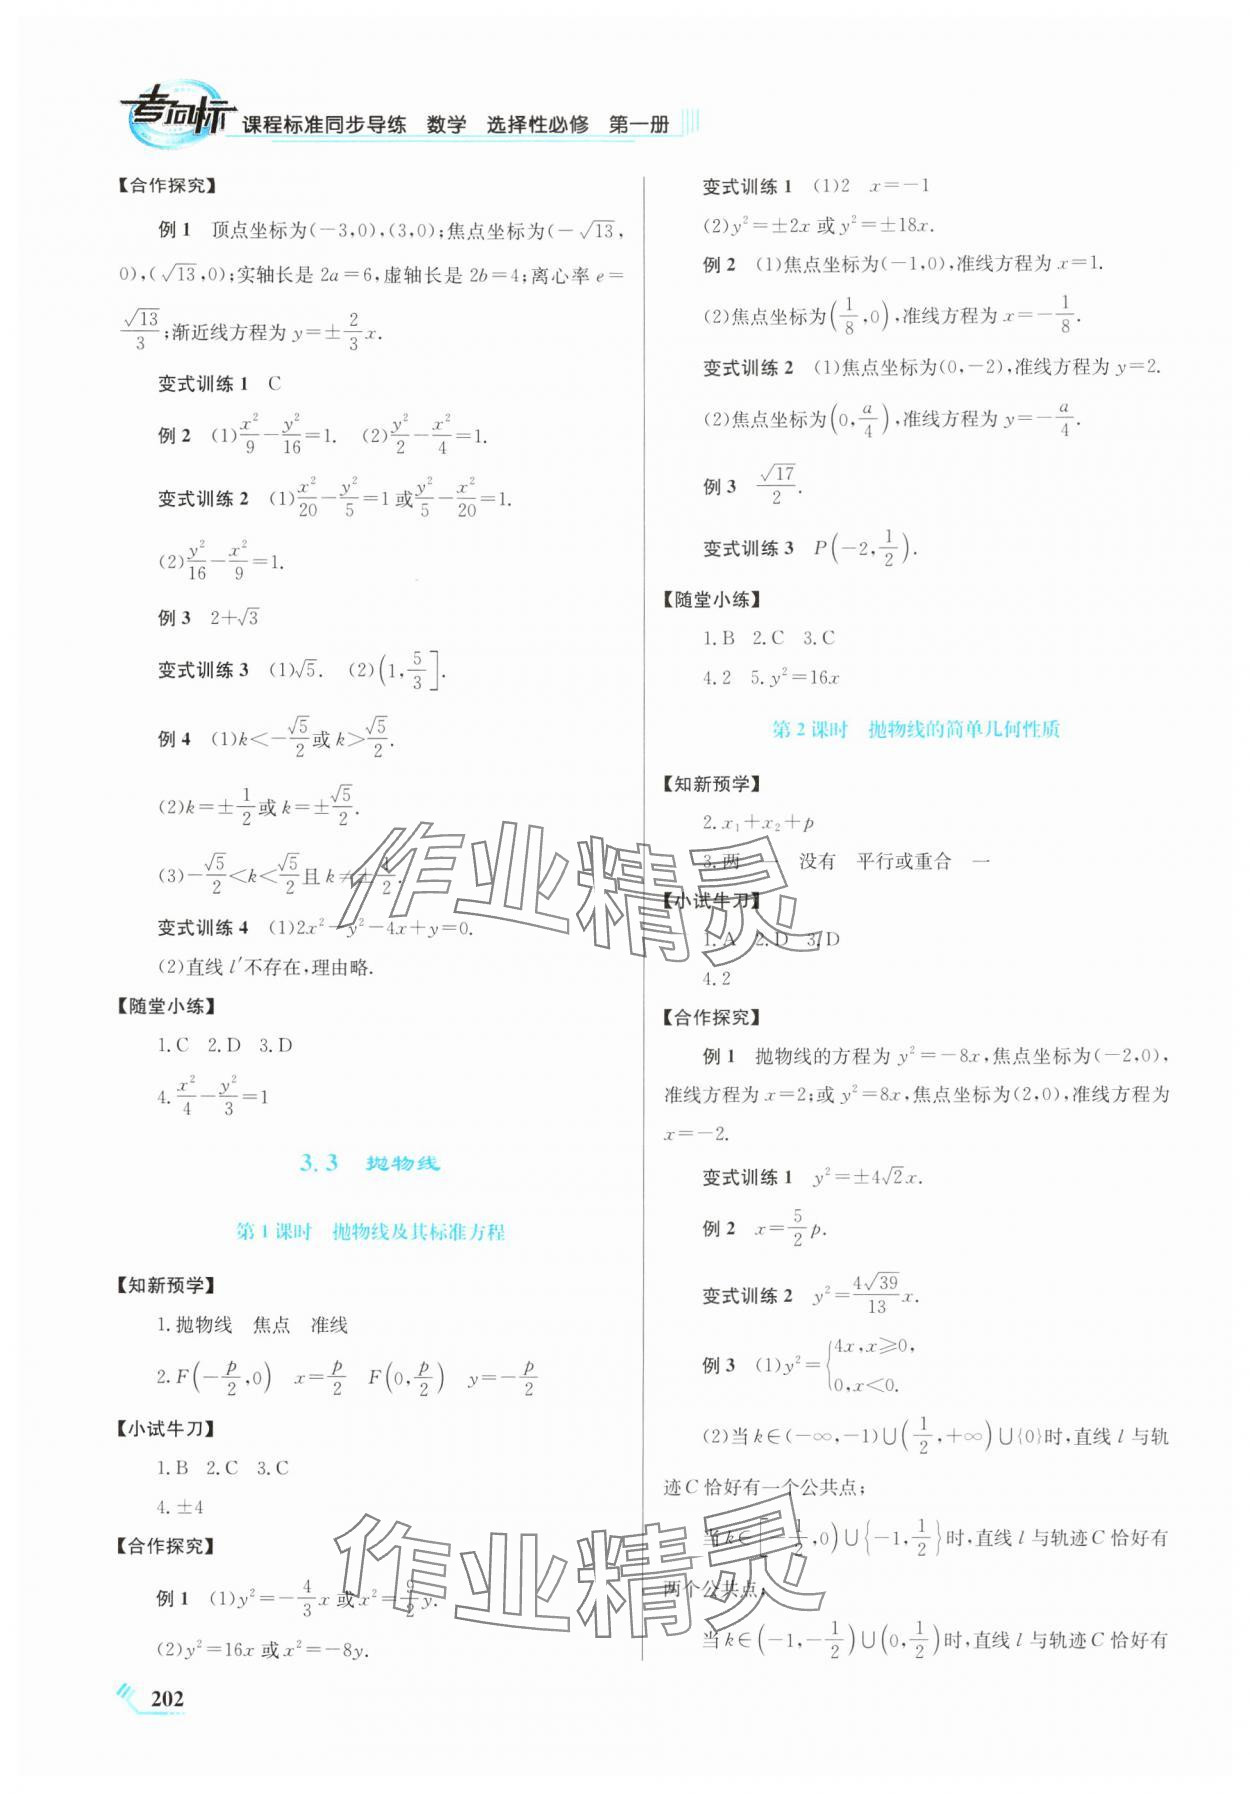 考向标
课程标准同步导练 数学 选择性必修 第一册
【合作探究】
例1 顶点坐标为(-3,0),(3,0);焦点坐标为(-√13,
0),(√13,0);实轴长是 2a=6,虚轴长是 2b=4;离心率 e=
√13/3;渐近线方程为 y=±2/3x.
变式训练1 C
例2 (1)x²/9-y²/16=1. (2)y²/2-x²/4=1.
变式训练2 (1)x²/20-y²/5=1或y²/5-x²/20=1.
(2)y²/16-x²/9=1.
例3 2+√3
变式训练3 (1)√5. (2)(1,5/3].
例4 (1)k<-√5/2或k>√5/2.
(2)k=±1/2或k=±√5/2.
(3)-√5/2<k<√5/2且k≠±1/2.
变式训练4 (1)2x²-y²-4x+y=0.
(2)直线l′不存在,理由略.
【随堂小练】
1.C 2.D 3.D
4.x²/4-y²/3=1
3.3 抛物线
第1课时 抛物线及其标准方程
【知新预学】
1.抛物线 焦点 准线
2.F(-p/2,0) x=p/2 F(0,p/2) y=-p/2
【小试牛刀】
1.B 2.C 3.C
4.±4
【合作探究】
例1 (1)y²=-4/3x或x²=9/2y.
(2)y²=16x或x²=-8y.
202
变式训练1 (1)2 x=-1
(2)y²=±2x或y²=±18x.
例2 (1)焦点坐标为(-1,0),准线方程为x=1.
(2)焦点坐标为(1/8,0),准线方程为x=-1/8.
变式训练2 (1)焦点坐标为(0,-2),准线方程为y=2.
(2)焦点坐标为(0,a/4),准线方程为y=-a/4.
例3 √17/2.
变式训练3 P(-2,1/2).
【随堂小练】
1.B 2.C 3.C
4.2 5.y²=16x
第2课时 抛物线的简单几何性质
【知新预学】
2.x₁+x₂+p
3.两 一 没有 平行或重合 一
【小试牛刀】
1.A 2.D 3.D
4.2
【合作探究】
例1 抛物线的方程为y²=-8x,焦点坐标为(-2,0),
准线方程为x=2;或y²=8x,焦点坐标为(2,0),准线方程为
x=-2.
变式训练1 y²=±4√2x.
例2 x=5/2p.
变式训练2 y²=4√39/13x.
例3 (1)y²={4x,x≥0,
0,x<0.
(2)当k∈(-∞,-1)∪(1/2,+∞)∪{0}时,直线l与轨
迹C恰好有一个公共点;
当k∈[-1/2,0)∪{-1,1/2}时,直线l与轨迹C恰好有
两个公共点;
当k∈(-1,-1/2)∪(0,1/2)时,直线l与轨迹C恰好有
作业精灵
作业精灵